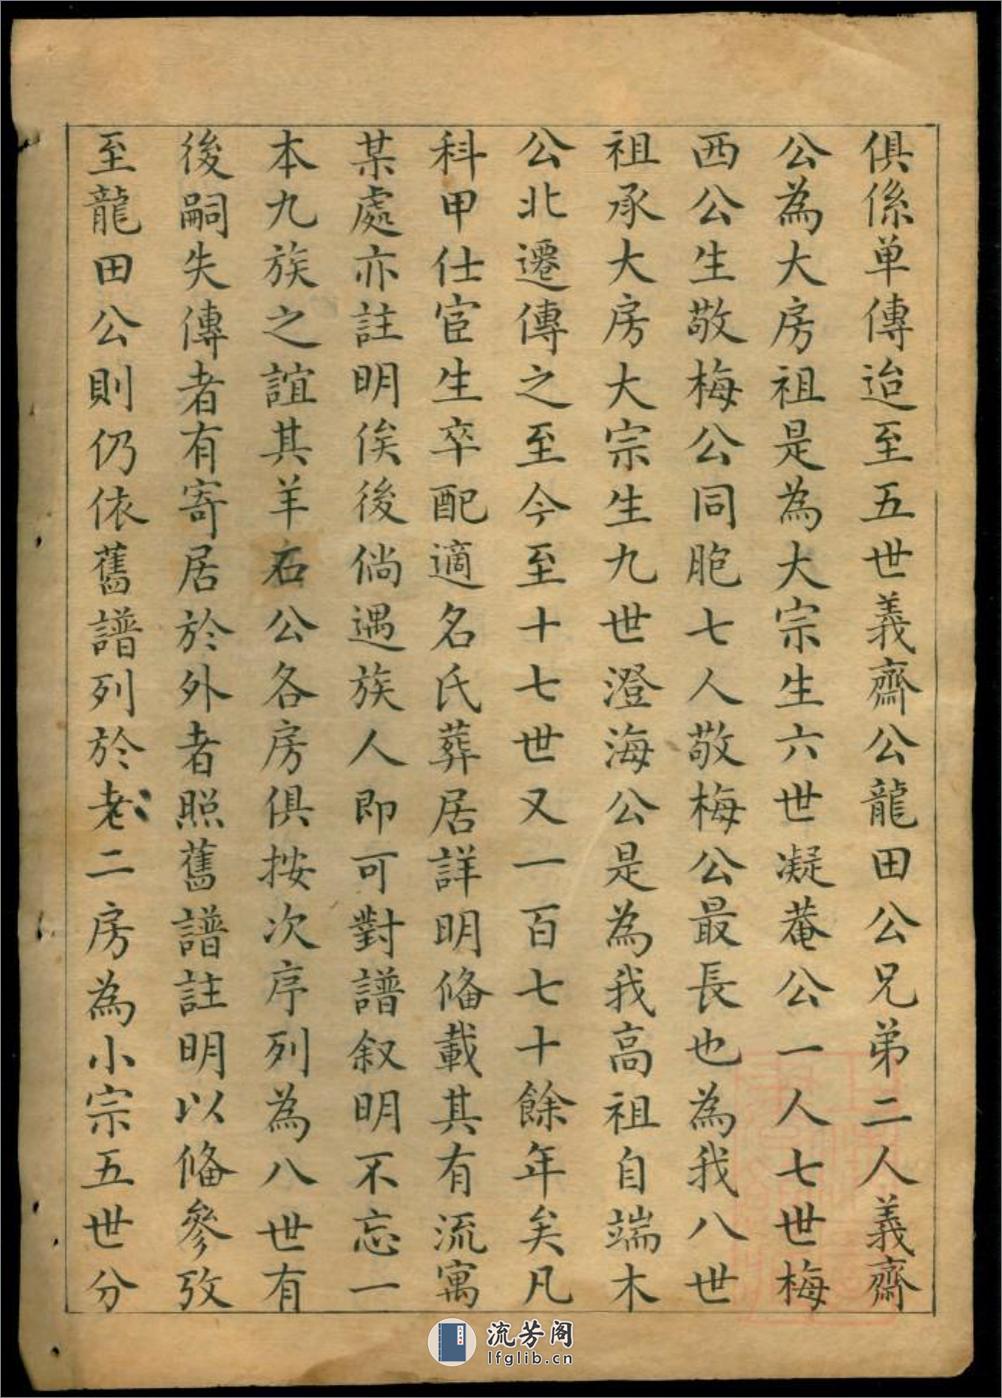 俱係单傳迨至五世義齋公龍田公兄弟二人義齋
公為大房祖是為大宗生六世凝菴公一人七世梅
西公生敬梅公同胞七人敬梅公最長也為我八世
祖承大房大宗生九世澄海公是為我高祖自端木
公北遷傳之至今至十七世又一百七十餘年矣凡
科甲仕宦生卒配適名氏葬居詳明俻載其有流寓
某處亦註明俟後倘遇族人即可對譜叙明不忘一
本九族之誼其羊石公各房俱按次序列為八世有
後嗣失傳者有寄居於外者照舊譜註明以俻參攷
至龍田公則仍依舊譜列於老二房為小宗五世分
流芳阁
lfglib.cn